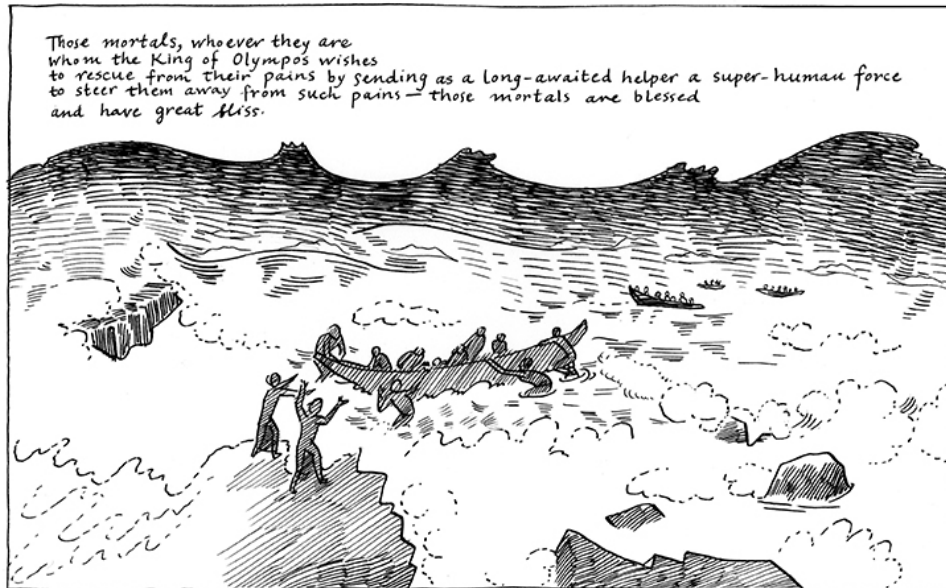 Those mortals, whoever they are
whom the King of Olympos wishes
to rescue from their pains by sending as a long-awaited helper a super-human force
to steer them away from such pains — those mortals are blessed
and have great bliss.